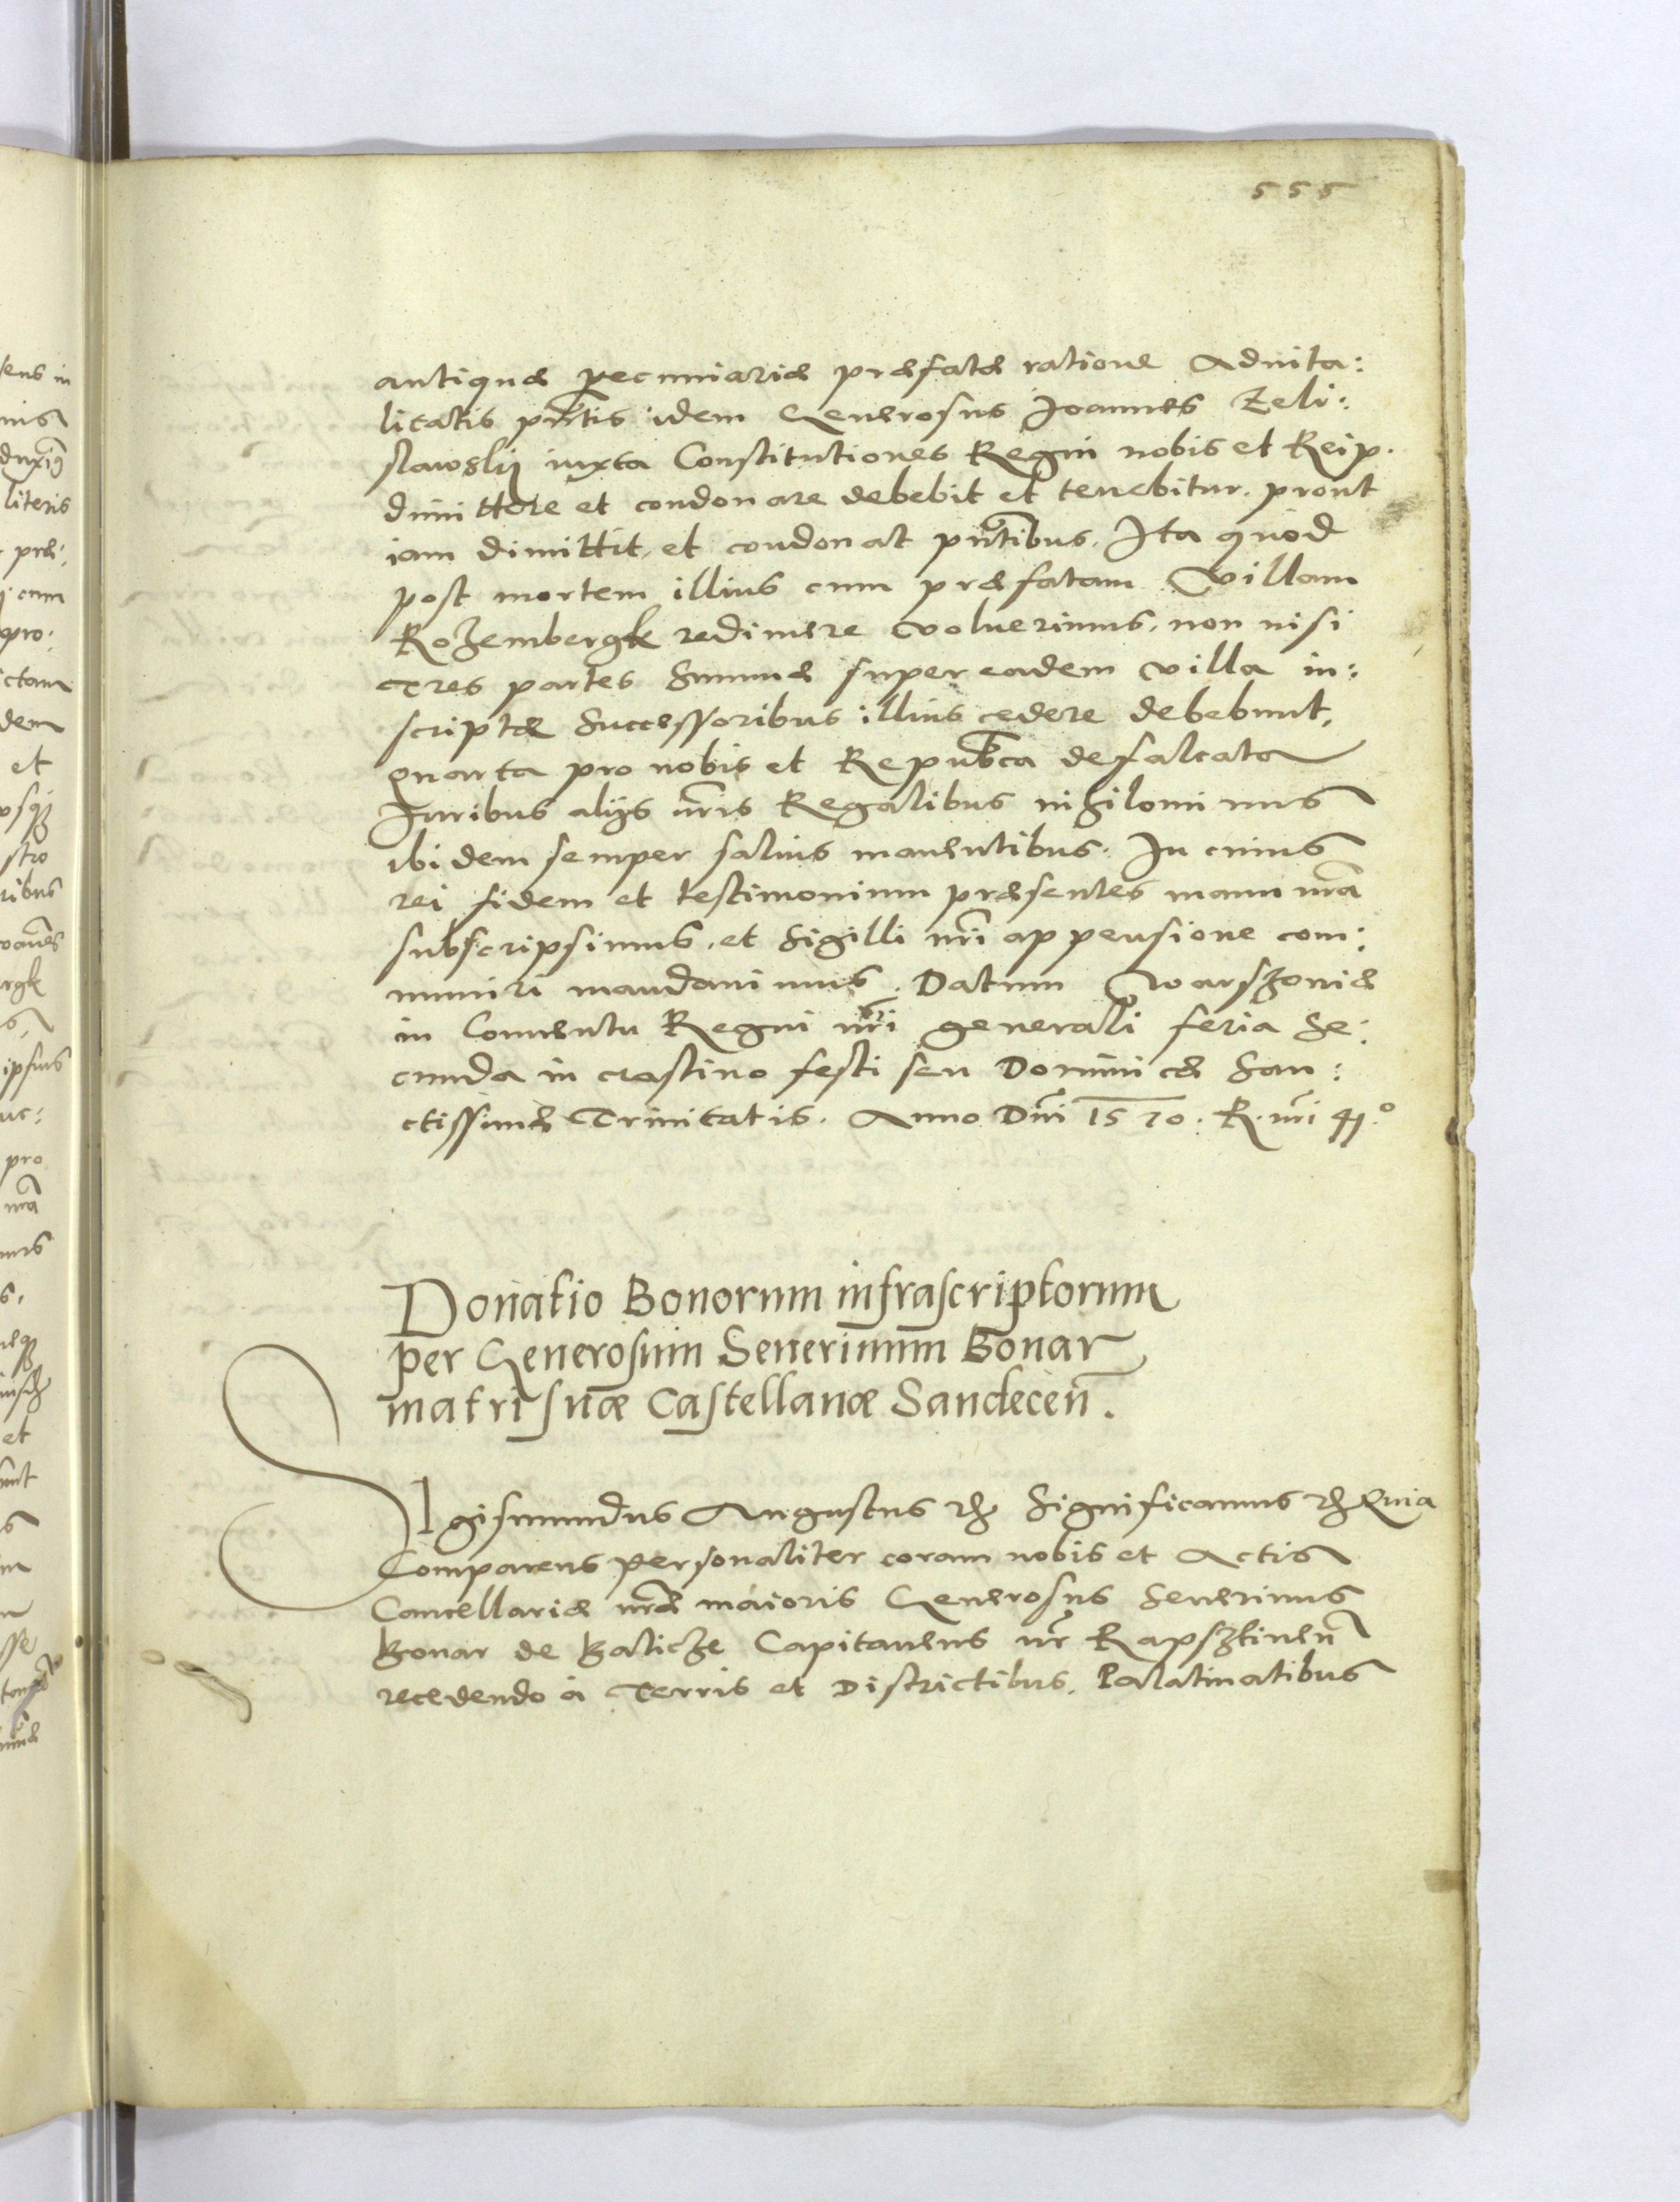 555
antiquæ pecuniariæ præfatæ ratione Aduita:
litatis pñtis idem Generosus Joannes Zeli:
slawskij iuxta Constitutiones Regni nobis et Reip.
dimittere et condonare debebit et tenebitur. prout
iam dimittit, et condonat pñtibus. Ita quod
post mortem illius cum præfatam Villam
Rozembergk redimere voluerimus, non nisi
Tres partes Summæ super eadem villa in:
scriptæ Successoribus illius cedere debebunt,
quarta pro nobis et Repubca defalcata
Iuribus alijs nr̃is Regalibus nihilominus
ibidem semper saluis manentibus. In cuius
rei fidem et testimonium præsentes manu nr̃a
subscripsimus, et Sigilli nr̃i appensione com:
muniri mandauimus. Datum Warszouiæ
in Conuentu Regni nr̃i generali feria Se:
cunda in crastino festi seu Dominicæ San:
ctissimæ Trinitatis. Anno Dñi 1570. R. nr̃i 41.º
Donatio Bonorum infrascriptorum
per Generosum Seuerinum Bonar
matri suæ Castellanæ Sandeceñ.
Sigismundus Augustus etc Significamus etc Quia
Comparens personaliter coram nobis et Actis
Cancellariæ nr̃æ maioris Generosus Seuerinus
Bonar de Balicze Capitaneus nr̃ Rapsztineñ
recedendo à Terris et Districtibus, Palatinatibus